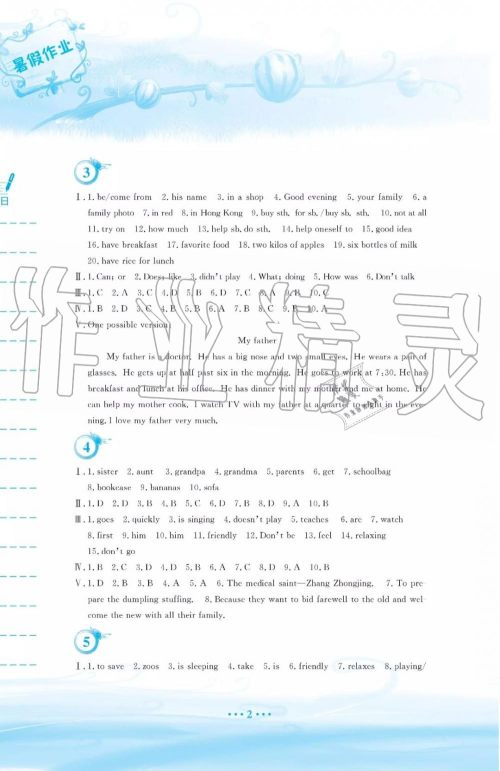 暑假作业
日
3
Ⅰ. 1. be/come from 2. his name 3. in a shop 4. Good evening 5. your family 6. a
family photo 7. in red 8. in Hong Kong 9. buy sth. for sb. /buy sb. sth. 10. not at all
11. try on 12. how much 13. help sb. do sth. 14. help oneself to 15. good idea
16. have breakfast 17. favorite food 18. two kilos of apples 19. six bottles of milk
20. have rice for lunch
Ⅱ. 1. Can; or 2. Does; like 3. didn't play 4. What; doing 5. How was 6. Don't talk
Ⅲ. 1. C 2. A 3. C 4. D 5. B 6. D 7. C 8. A 9. B 10. C
Ⅳ. 1. B 2. D 3. C 4. B 5. B 6. A 7. B 8. C 9. B 10. A
Ⅴ. One possible version:
My father
My father is a doctor. He has a big nose and two small eyes. He wears a pair of
glasses. He gets up at half past six in the morning. He goes to work at 7:30. He has
breakfast and lunch at his office. He has dinner with my mother and me at home. He
can help my mother cook. I watch TV with my father at a quarter to eight in the eve-
ning. I love my father very much.
4
Ⅰ. 1. sister 2. aunt 3. grandpa 4. grandma 5. parents 6. get 7. schoolbag
8. bookcase 9. bananas 10. sofa
Ⅱ. 1. D 2. D 3. B 4. B 5. C 6. D 7. B 8. D 9. A 10. B
Ⅲ. 1. goes 2. quickly 3. is singing 4. doesn't play 5. teaches 6. are 7. watch
8. first 9. him 10. him 11. friendly 12. Don't be 13. feel 14. relaxing
15. don't go
Ⅳ. 1. B 2. C 3. D 4. A 5. C 6. B 7. C 8. D 9. A 10. B
Ⅴ. 1. D 2. B 3. B 4. A 5. A 6. The medical saint—Zhang Zhongjing. 7. To pre-
pare the dumpling stuffing. 8. Because they want to bid farewell to the old and wel-
come the new with all their family.
5
Ⅰ. 1. to save 2. zoos 3. is sleeping 4. take 5. is 6. friendly 7. relaxes 8. playing/
2
作业精灵